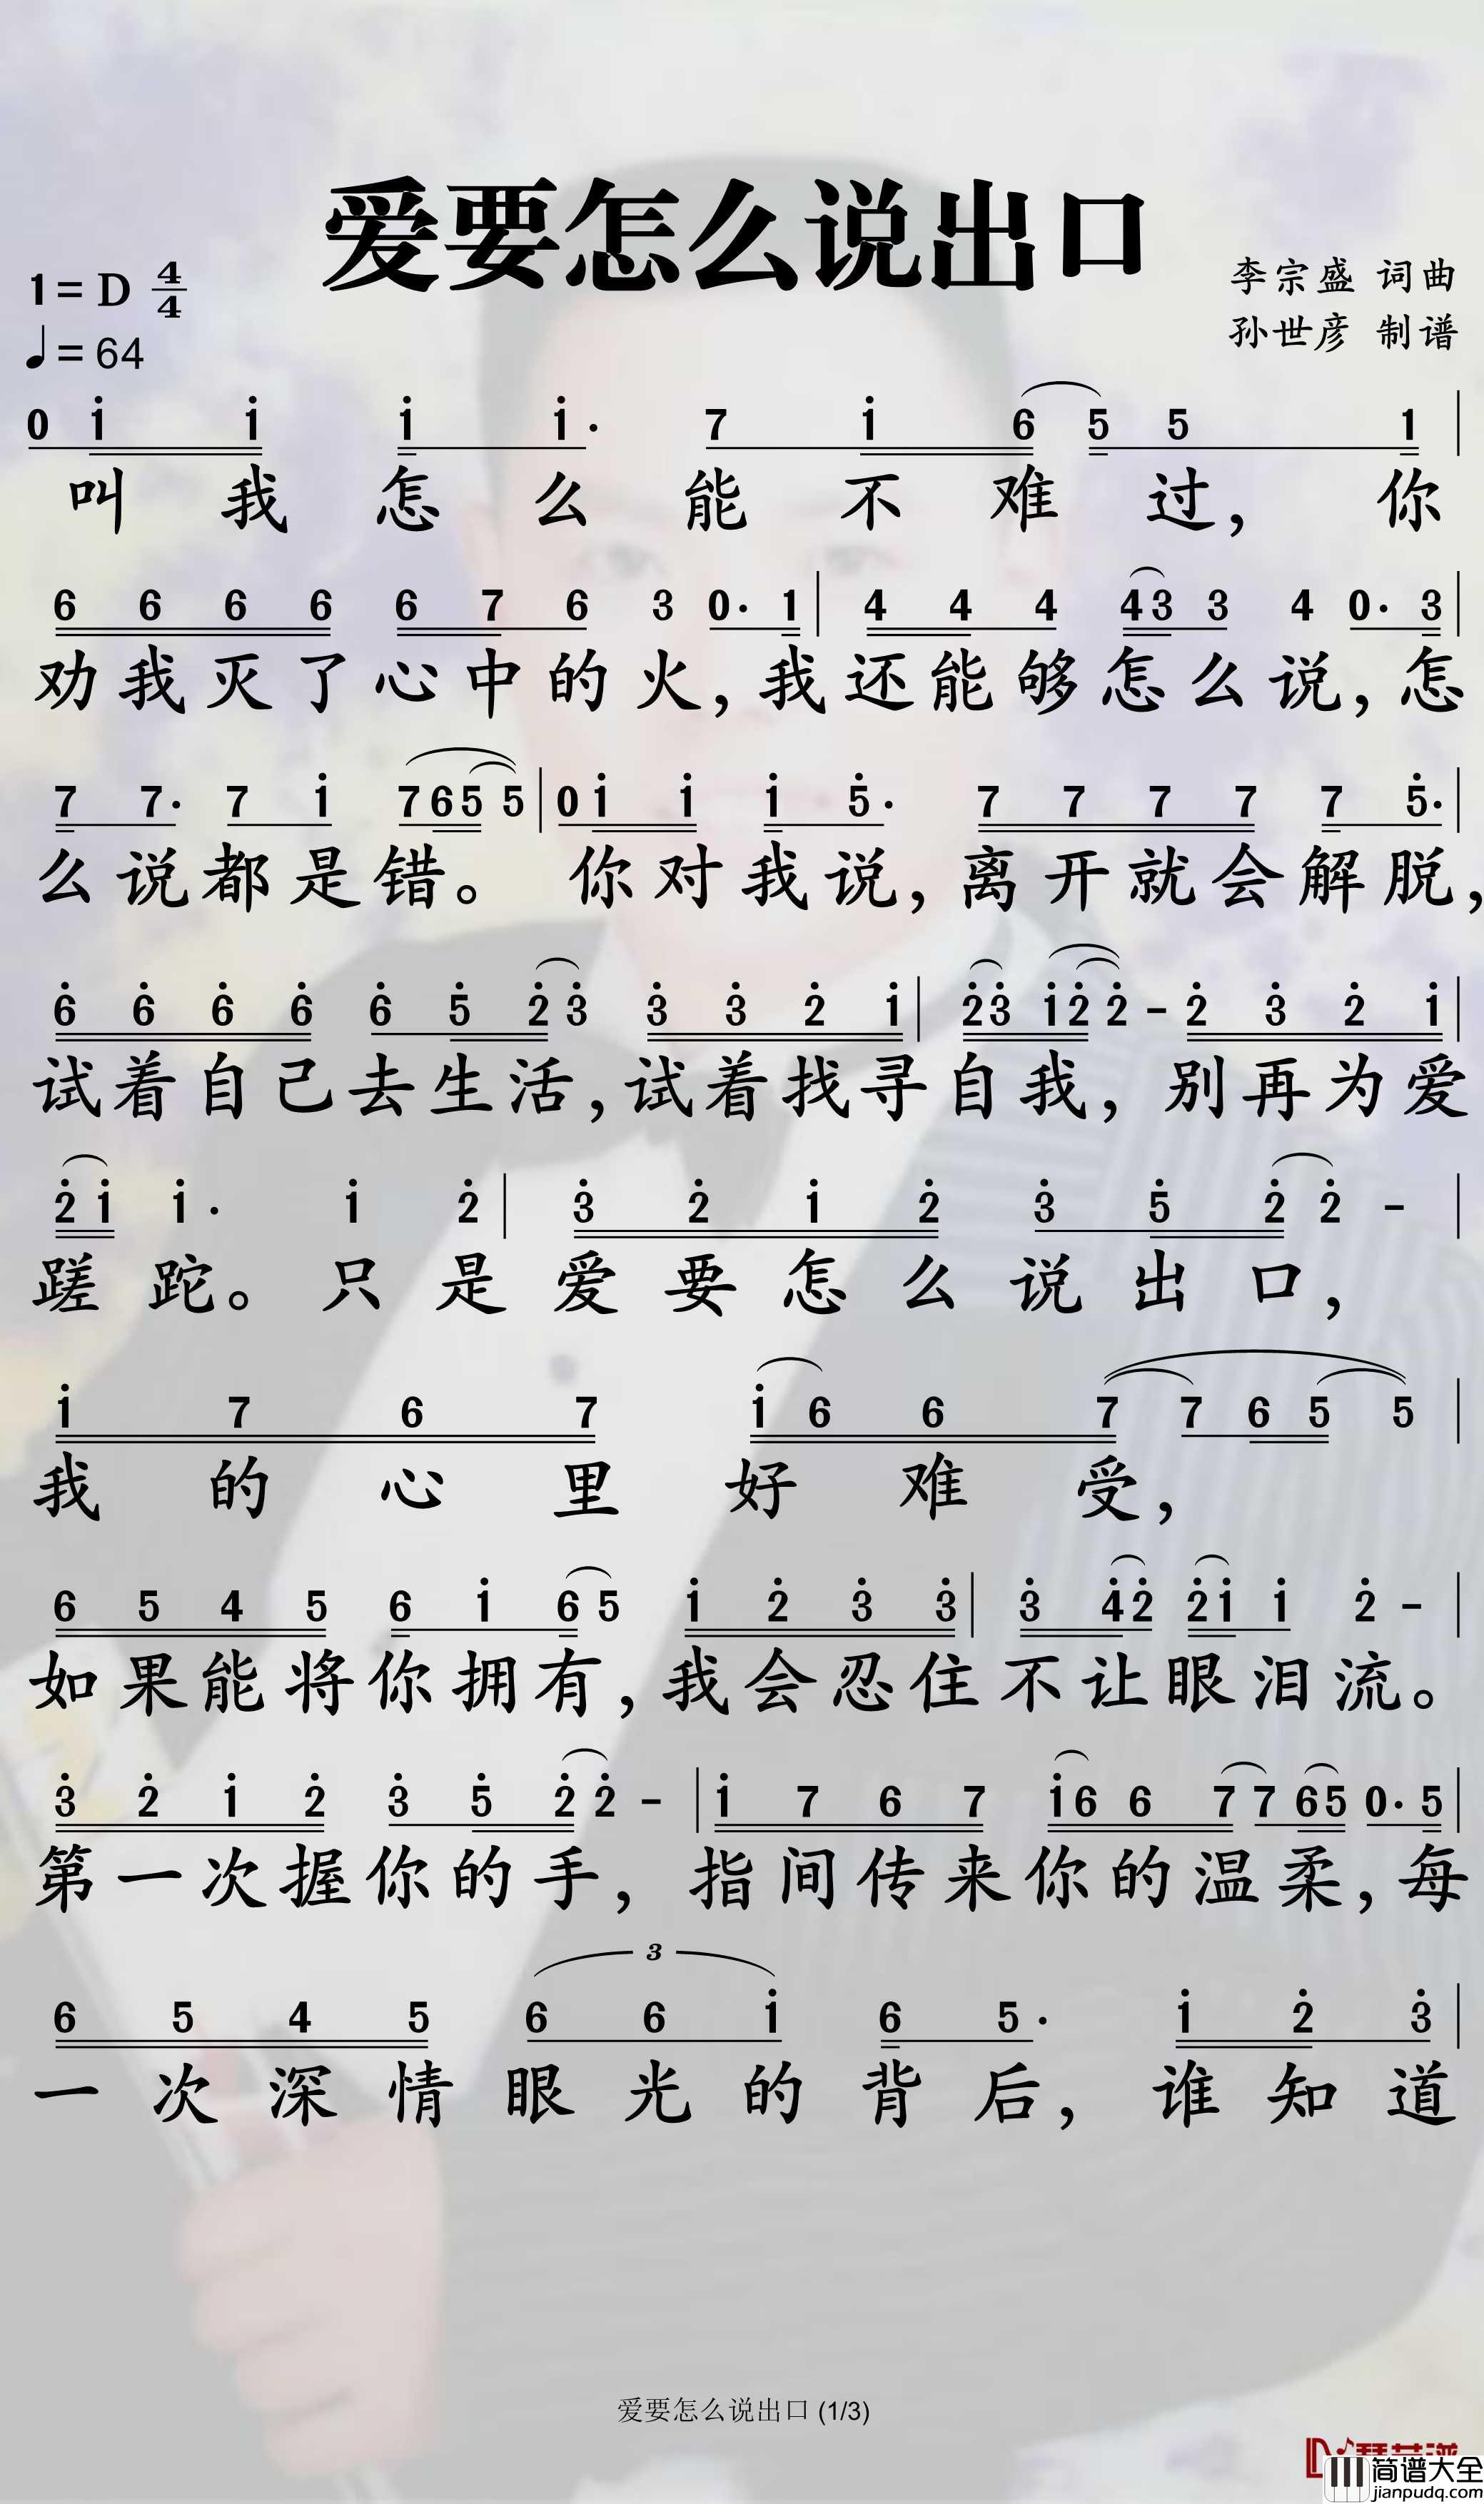 爱要怎么说出口
1=D 4/4
李宗盛 词曲
♩=64
孙世彦 制谱
0 i i i i· 7 i 6 5 5 1 |
叫我怎么能不难过，你
6 6 6 6 6 7 6 3 0· 1 | 4 4 4 4 3 3 4 0· 3 |
劝我灭了心中的火，我还能够怎么说，怎
7 7· 7 i 7 6 5 5 | 0 i i i 5̇· 7 7 7 7 7 5̇· |
么说都是错。你对我说，离开就会解脱，
6̇ 6̇ 6̇ 6̇ 6̇ 5̇ 2̇ 3̇ 3̇ 3̇ 2̇ i | 2̇ 3̇ i 2̇ 2̇ - 2̇ 3̇ 2̇ i |
试着自己去生活，试着找寻自我，别再为爱
2̇ i i· i 2̇ | 3̇ 2̇ i 2̇ 3̇ 5̇ 2̇ 2̇ - |
蹉跎。只是爱要怎么说出口，
i 7 6 7 i 6 6 7 7 6 5 5 |
我的心里好难受，
6 5 4 5 6 i 6 5 i 2̇ 3̇ 3̇ | 3̇ 4̇ 2̇ 2̇ i i 2̇ - |
如果能将你拥有，我会忍住不让眼泪流。
3̇ 2̇ i 2̇ 3̇ 5̇ 2̇ 2̇ - | i 7 6 7 i 6 6 7 7 6 5 0· 5 |
第一次握你的手，指间传来你的温柔，每
3
6 5 4 5 6 6 i 6 5· i 2̇ 3̇ |
一次深情眼光的背后，谁知道
爱要怎么说出口 (1/3)
简谱大全
jianpudq.com